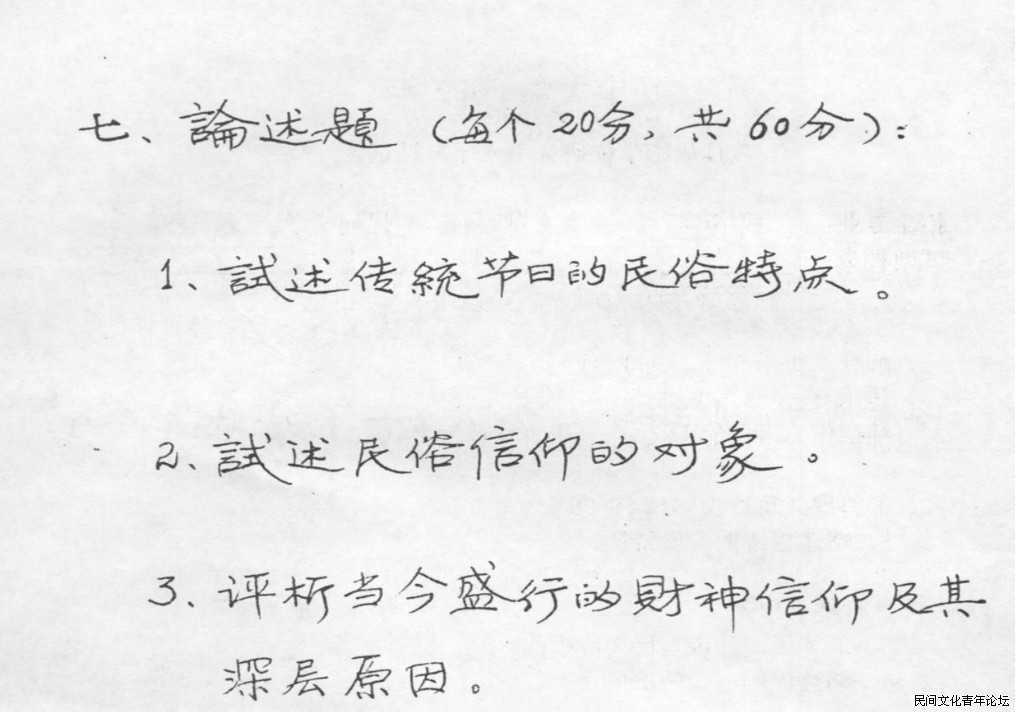 七、論述題（每个20分，共60分）：
1、試述传統节日的民俗特点。
2、試述民俗信仰的对象。
3、评析当今盛行的財神信仰及其
深层原因。
民间文化青年论坛